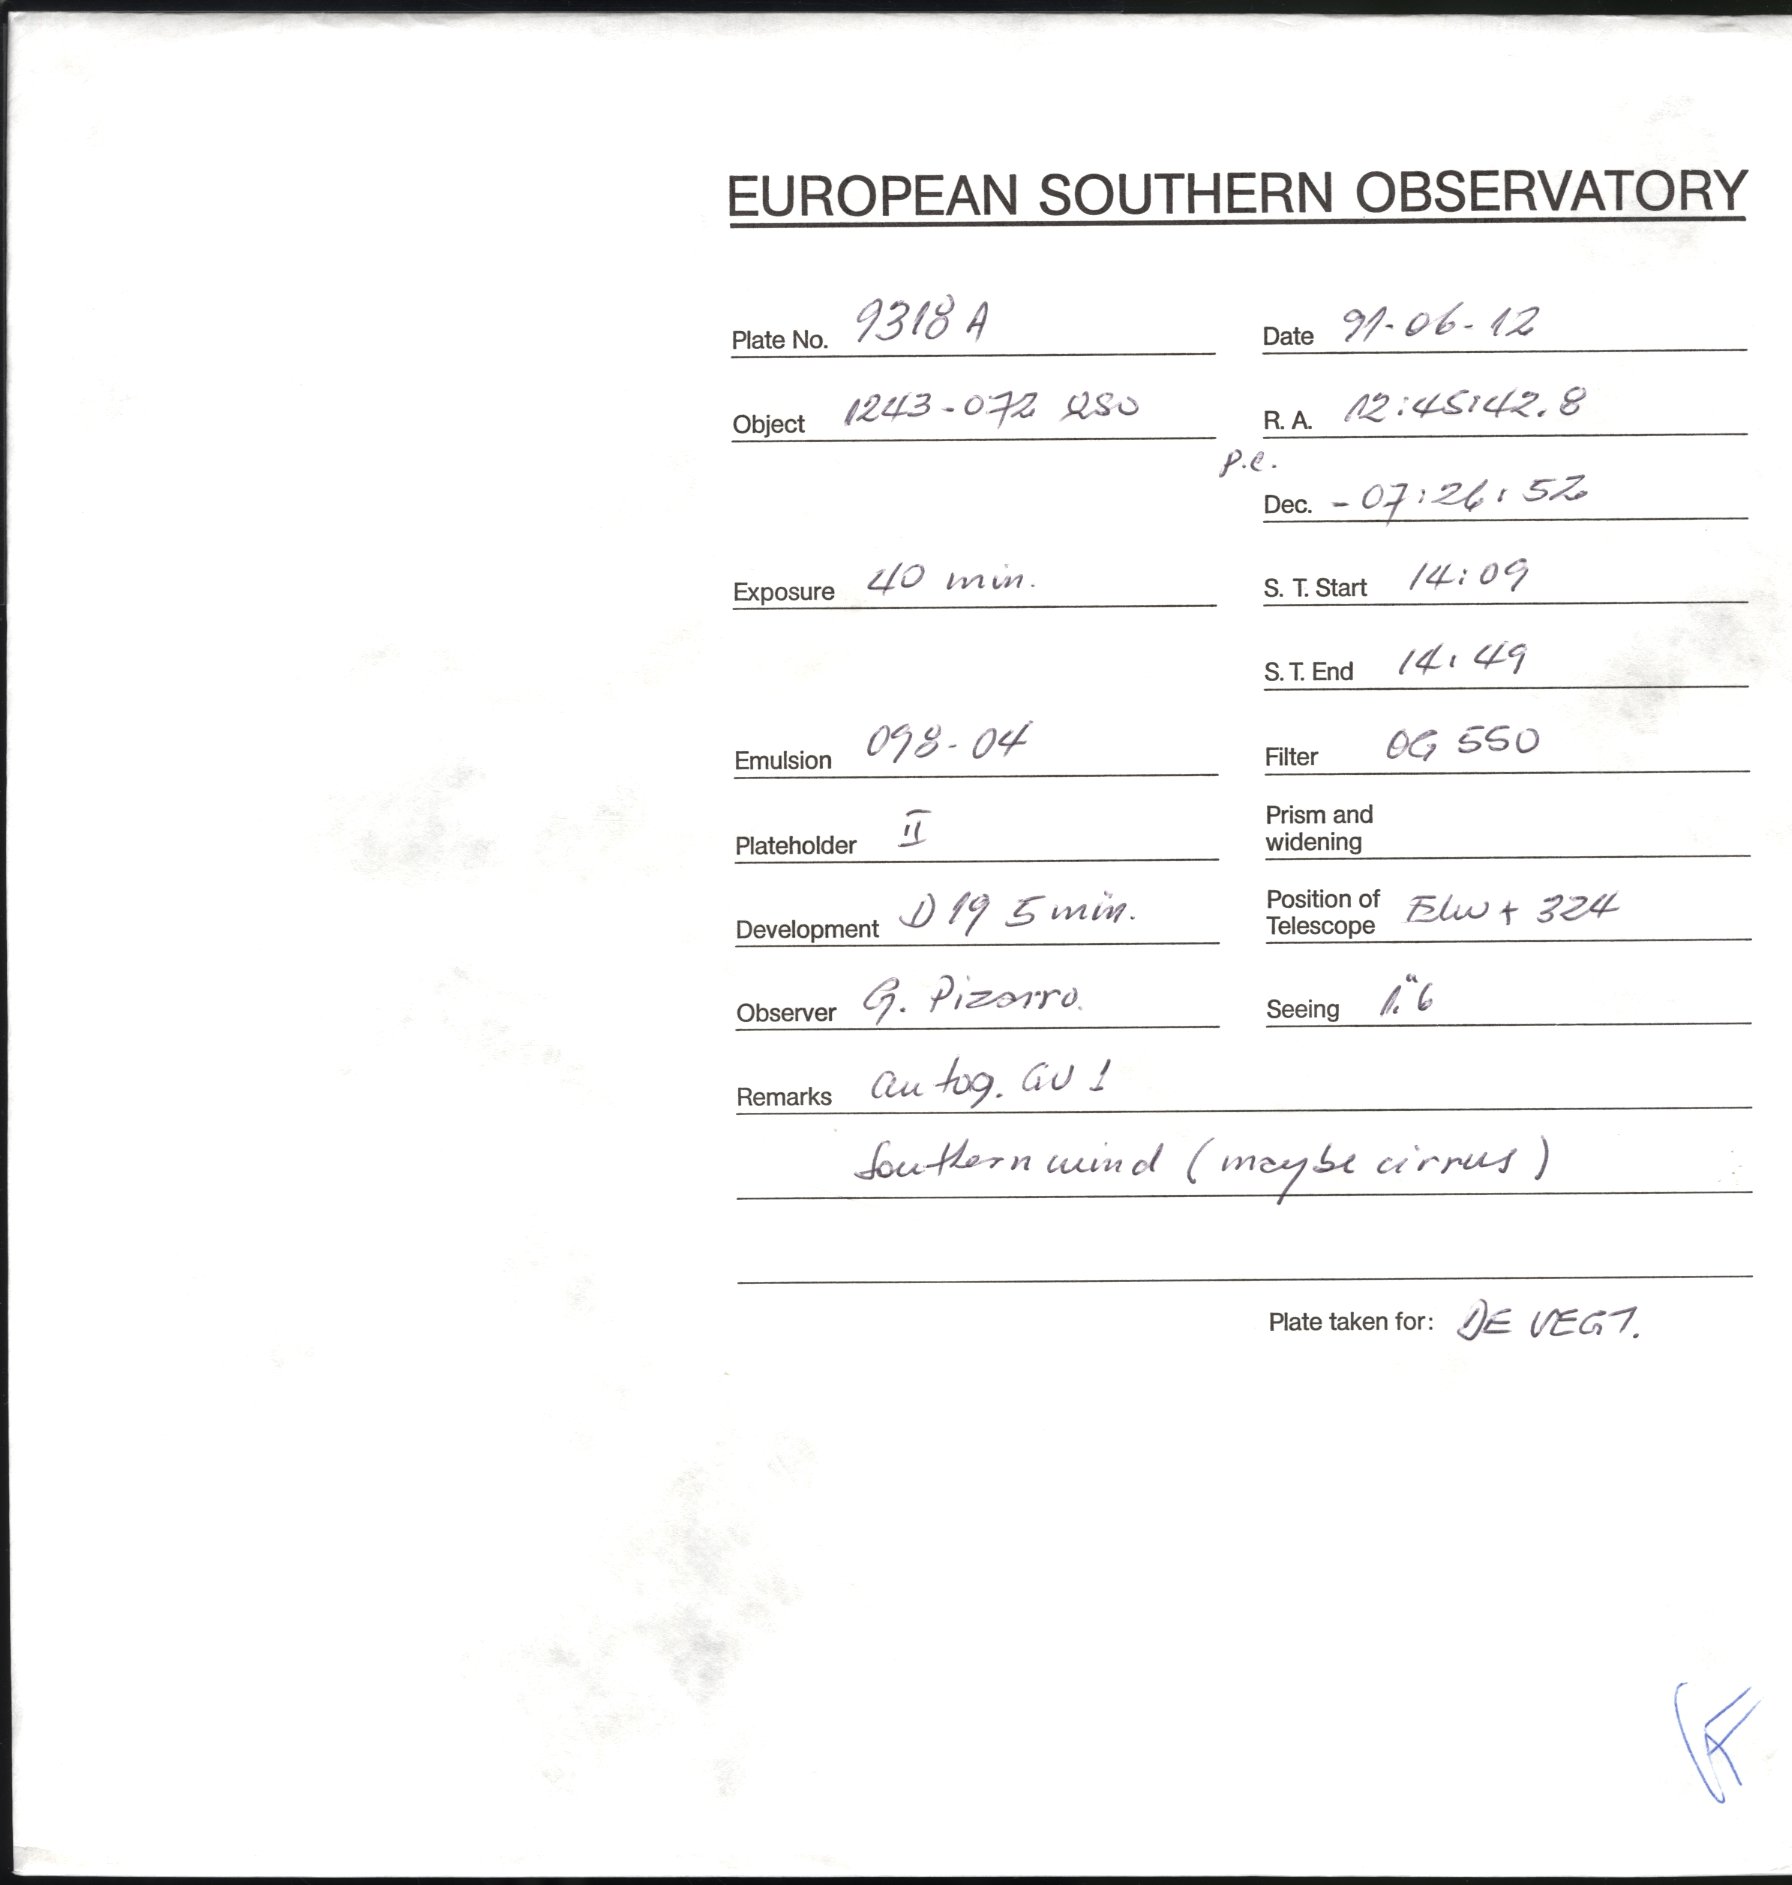 EUROPEAN SOUTHERN OBSERVATORY
Plate No. 9318 A Date 91-06-12
Object 1243-072 QSO R. A. 12:45:42.8
p.c.
Dec. -07:26:52
Exposure 40 min. S. T. Start 14:09
S. T. End 14:49
Emulsion 098-04 Filter OG 550
Plateholder II Prism and
widening
Development D19 5 min. Position of
Telescope + 324
Observer G. Pizarro. Seeing 1."6
Remarks autog. GV 1
Southern wind (maybe cirrus)
Plate taken for: DE VEGT.